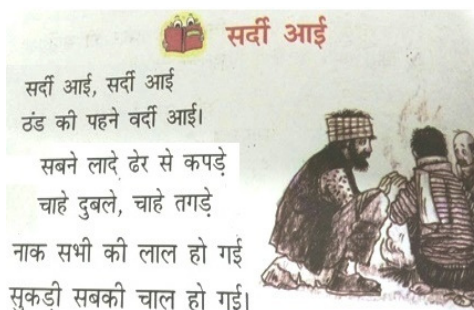 सर्दी आई
सर्दी आई, सर्दी आई
ठंड की पहने वर्दी आई।
सबने लादे ढेर से कपड़े
चाहे दुबले, चाहे तगड़े
नाक सभी की लाल हो गई
सुकड़ी सबकी चाल हो गई।